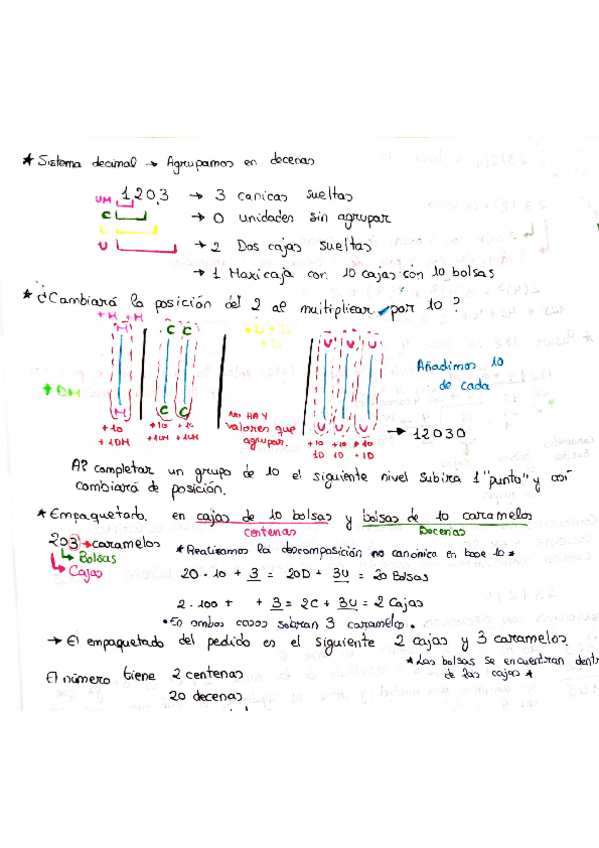 * Sistema decimal → Agrupamos en decenas
UM 1203 → 3 canicas sueltas
C → 0 unidades sin agrupar
D
U → 2 Dos cajas sueltas
→ 1 Maxi caja con 10 cajas con 10 bolsas
* ¿Cambiará la posición del 2 al multiplicar por 10 ?
+M +M
M C C +D +D U U U
+D
Añadimos 10
de cada
+ DM
M C C NO HAY U U U
+10 +10 +10 valores que +10 +10 +10 → 12030
+1DM +1UM +1UM agrupar. 1D 1D +1D
Al completar un grupo de 10 el siguiente nivel subirá 1 "punto" y así
cambiará de posición.
* Empaquetado. en cajas de 10 bolsas y bolsas de 10 caramelos
Centenas Decenas
203 → caramelos * Realizamos la descomposición no canónica en base 10 *
↳ Bolsas
↳ Cajas 20 · 10 + 3 = 20D + 3U = 20 Bolsas
2 · 100 + + 3 = 2C + 3U = 2 Cajas
• En ambos casos sobran 3 caramelos.
→ El empaquetado del pedido es el siguiente 2 cajas y 3 caramelos.
* Las bolsas se encuentran dentr
de las cajas *
El número tiene 2 centenas
20 decenas